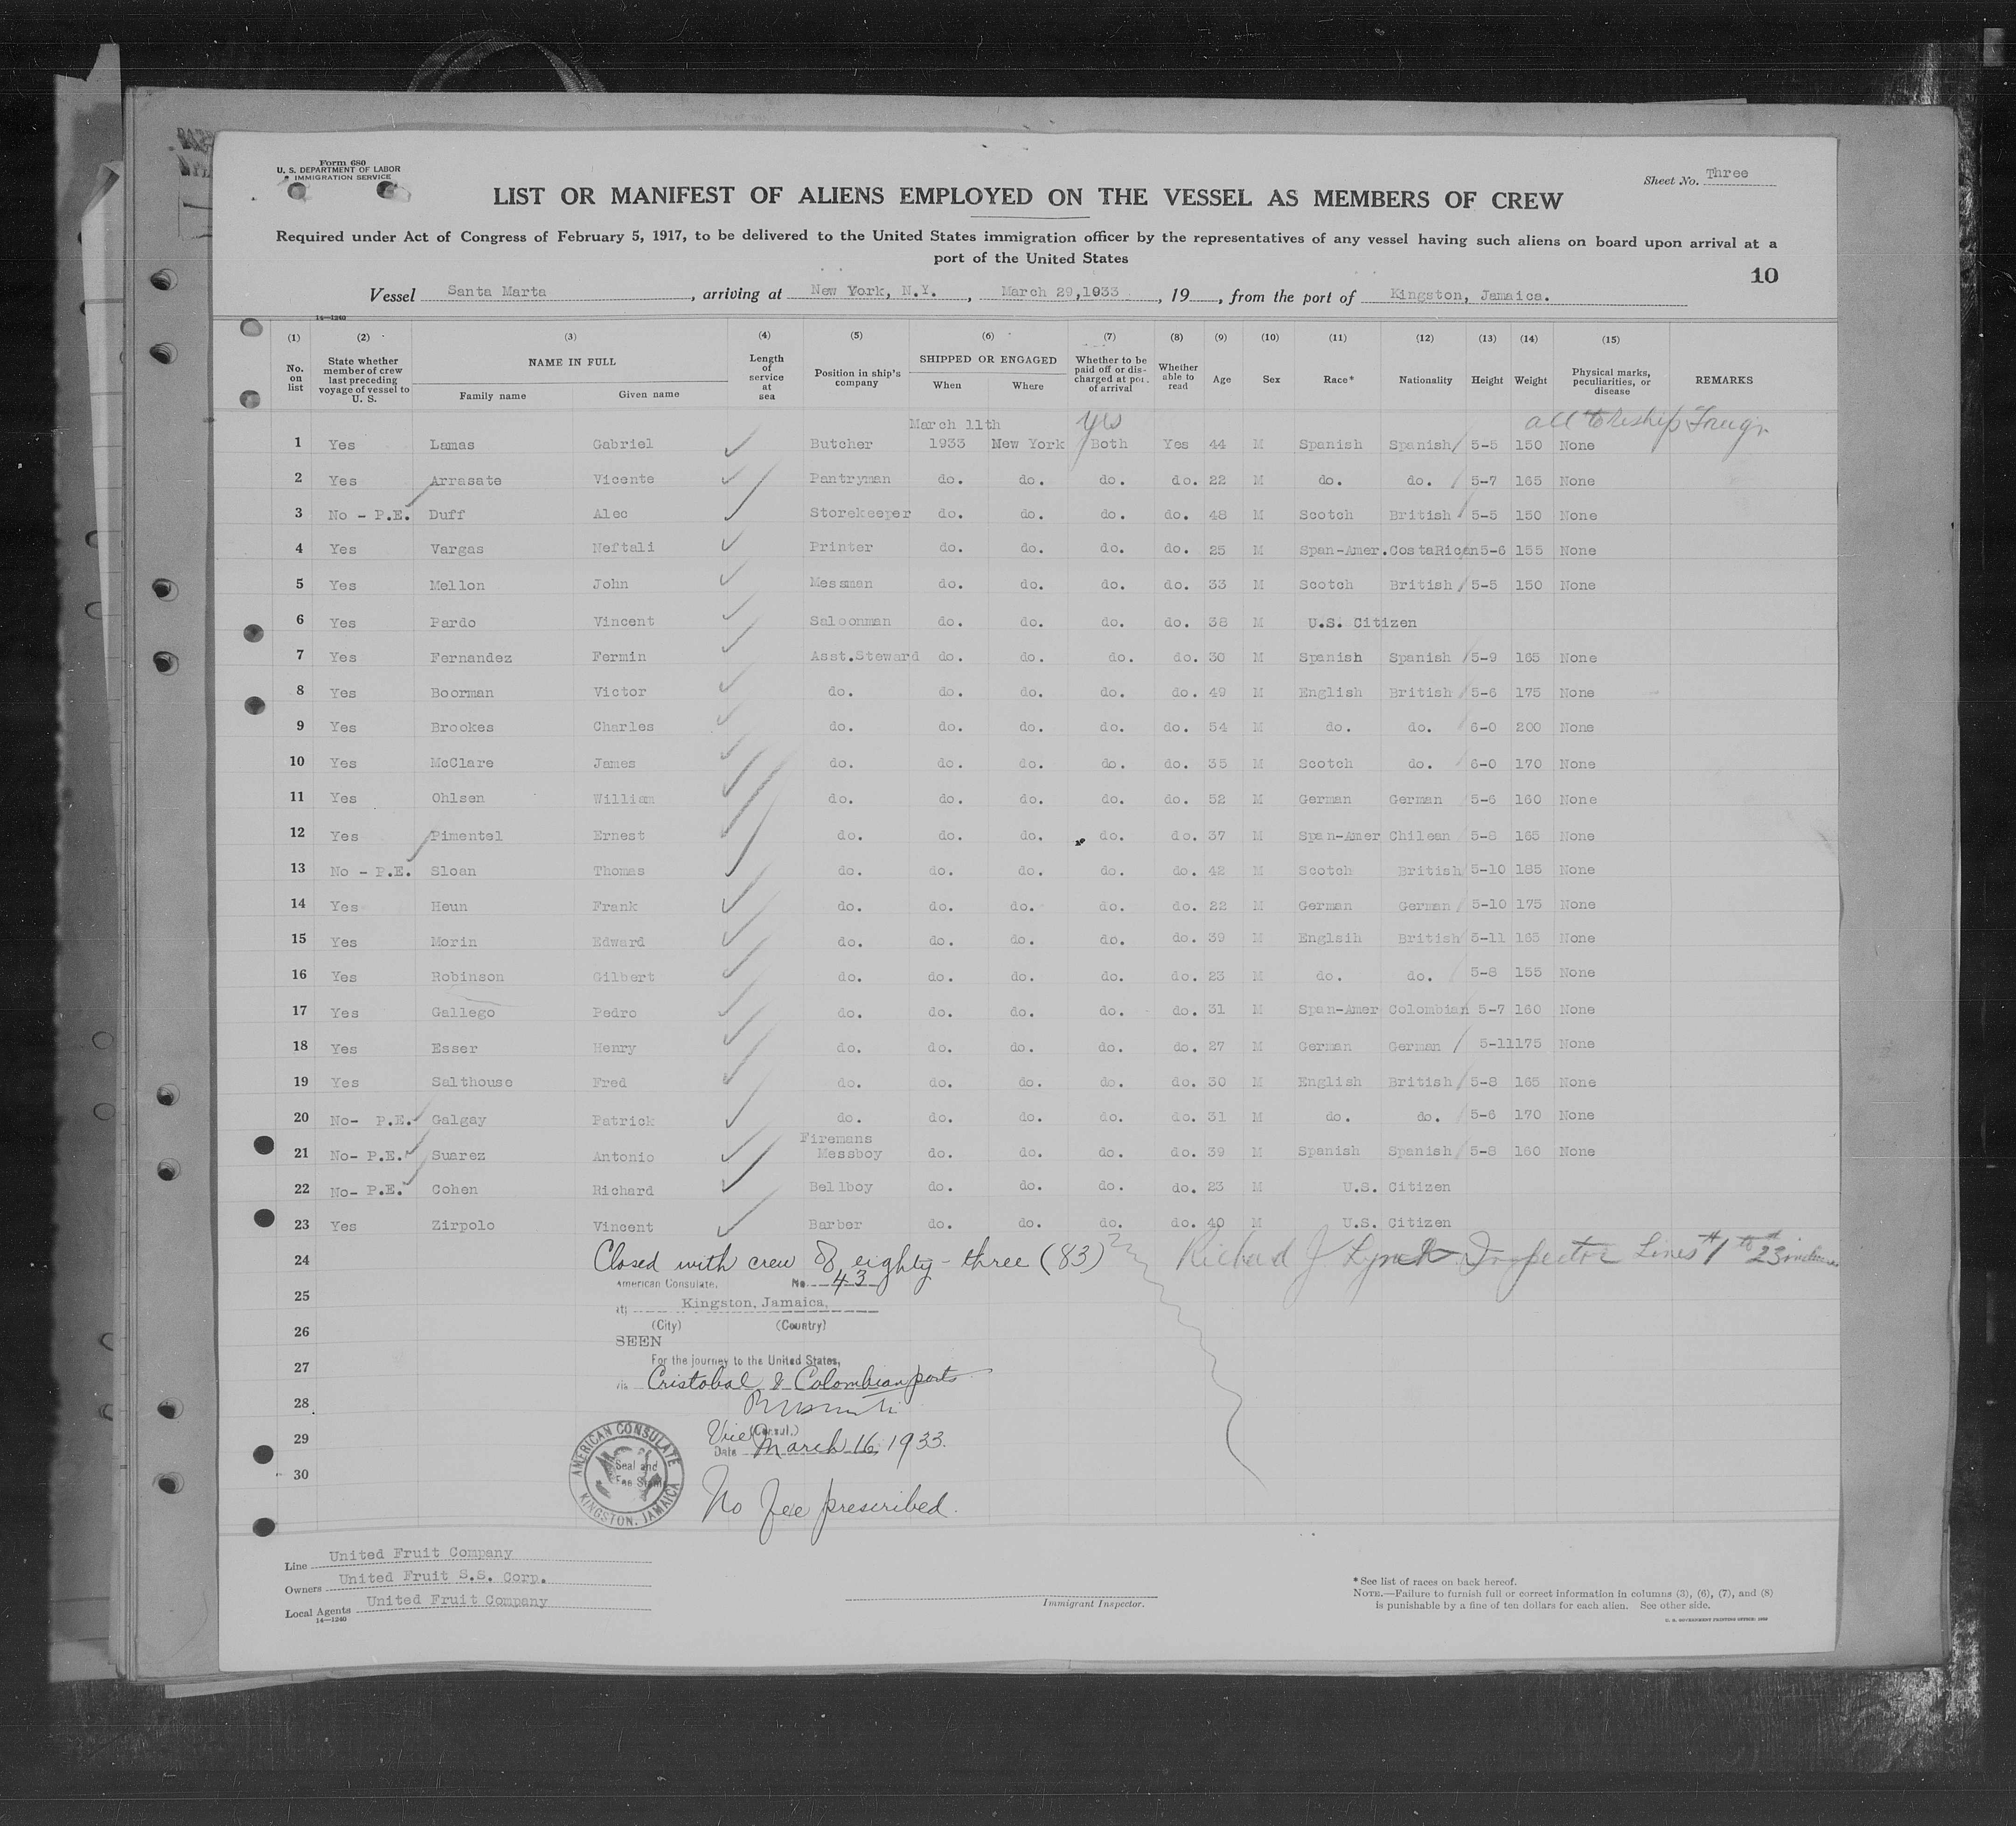 Form 680
U. S. DEPARTMENT OF LABOR
IMMIGRATION SERVICE
Sheet No. Three
LIST OR MANIFEST OF ALIENS EMPLOYED ON THE VESSEL AS MEMBERS OF CREW
Required under Act of Congress of February 5, 1917, to be delivered to the United States immigration officer by the representatives of any vessel having such aliens on board upon arrival at a
port of the United States
10
Vessel Santa Marta, arriving at New York, N.Y., March 29,1933, 19, from the port of Kingston, Jamaica.
14—1240
(1) (2) (3) (4) (5) (6) (7) (8) (9) (10) (11) (12) (13) (14) (15)
No. on list State whether member of crew last preceding voyage of vessel to U. S. NAME IN FULL Family name Given name Length of service at sea Position in ship's company SHIPPED OR ENGAGED When Where Whether to be paid off or discharged at port of arrival Whether able to read Age Sex Race* Nationality Height Weight Physical marks, peculiarities, or disease REMARKS
March 11th yes all to Reship
1 Yes Lamas Gabriel Butcher 1933 New York Both Yes 44 M Spanish Spanish 5-5 150 None
2 Yes Arrasate Vicente Pantryman do. do. do. do. 22 M do. do. 5-7 165 None
3 No - P.E. Duff Alec Storekeeper do. do. do. do. 48 M Scotch British 5-5 150 None
4 Yes Vargas Neftali Printer do. do. do. do. 25 M Span-Amer. CostaRican 5-6 155 None
5 Yes Mellon John Messman do. do. do. do. 33 M Scotch British 5-5 150 None
6 Yes Pardo Vincent Saloonman do. do. do. do. 38 M U.S. Citizen
7 Yes Fernandez Fermin Asst.Steward do. do. do. do. 30 M Spanish Spanish 5-9 165 None
8 Yes Boorman Victor do. do. do. do. do. 49 M English British 5-6 175 None
9 Yes Brookes Charles do. do. do. do. do. 54 M do. do. 6-0 200 None
10 Yes McClare James do. do. do. do. do. 35 M Scotch do. 6-0 170 None
11 Yes Ohlsen William do. do. do. do. do. 52 M German German 5-6 160 None
12 Yes Pimentel Ernest do. do. do. do. do. 37 M Span-Amer Chilean 5-8 165 None
13 No - P.E. Sloan Thomas do. do. do. do. do. 42 M Scotch British 5-10 185 None
14 Yes Heun Frank do. do. do. do. do. 22 M German German 5-10 175 None
15 Yes Morin Edward do. do. do. do. do. 39 M Englsih British 5-11 165 None
16 Yes Robinson Gilbert do. do. do. do. do. 23 M do. do. 5-8 155 None
17 Yes Gallego Pedro do. do. do. do. do. 31 M Span-Amer Colombian 5-7 160 None
18 Yes Esser Henry do. do. do. do. do. 27 M German German 5-11 175 None
19 Yes Salthouse Fred do. do. do. do. do. 30 M English British 5-8 165 None
20 No- P.E. Galgay Patrick do. do. do. do. do. 31 M do. do. 5-6 170 None
21 No- P.E. Suarez Antonio Firemans Messboy do. do. do. do. 39 M Spanish Spanish 5-8 160 None
22 No- P.E. Cohen Richard Bellboy do. do. do. do. 23 M U.S. Citizen
23 Yes Zirpolo Vincent Barber do. do. do. do. 40 M U.S. Citizen
24 Closed with crew of eighty-three (83) Richard J Lynch Inspector Lines #1 to #23 inclusive
American Consulate, No. 43
25 at Kingston, Jamaica,
(City) (Country)
26 SEEN
27 For the journey to the United States,
via Cristobal & Colombian ports
28
29 Vice (Consul.)
Date March 16, 1933.
30
AMERICAN CONSULATE KINGSTON, JAMAICA
Seal and
Fee Stamp
No fee prescribed.
Line United Fruit Company
Owners United Fruit S.S. Corp.
Local Agents United Fruit Company
14—1240
Immigrant Inspector.
* See list of races on back hereof.
NOTE.—Failure to furnish full or correct information in columns (3), (6), (7), and (8)
is punishable by a fine of ten dollars for each alien. See other side.